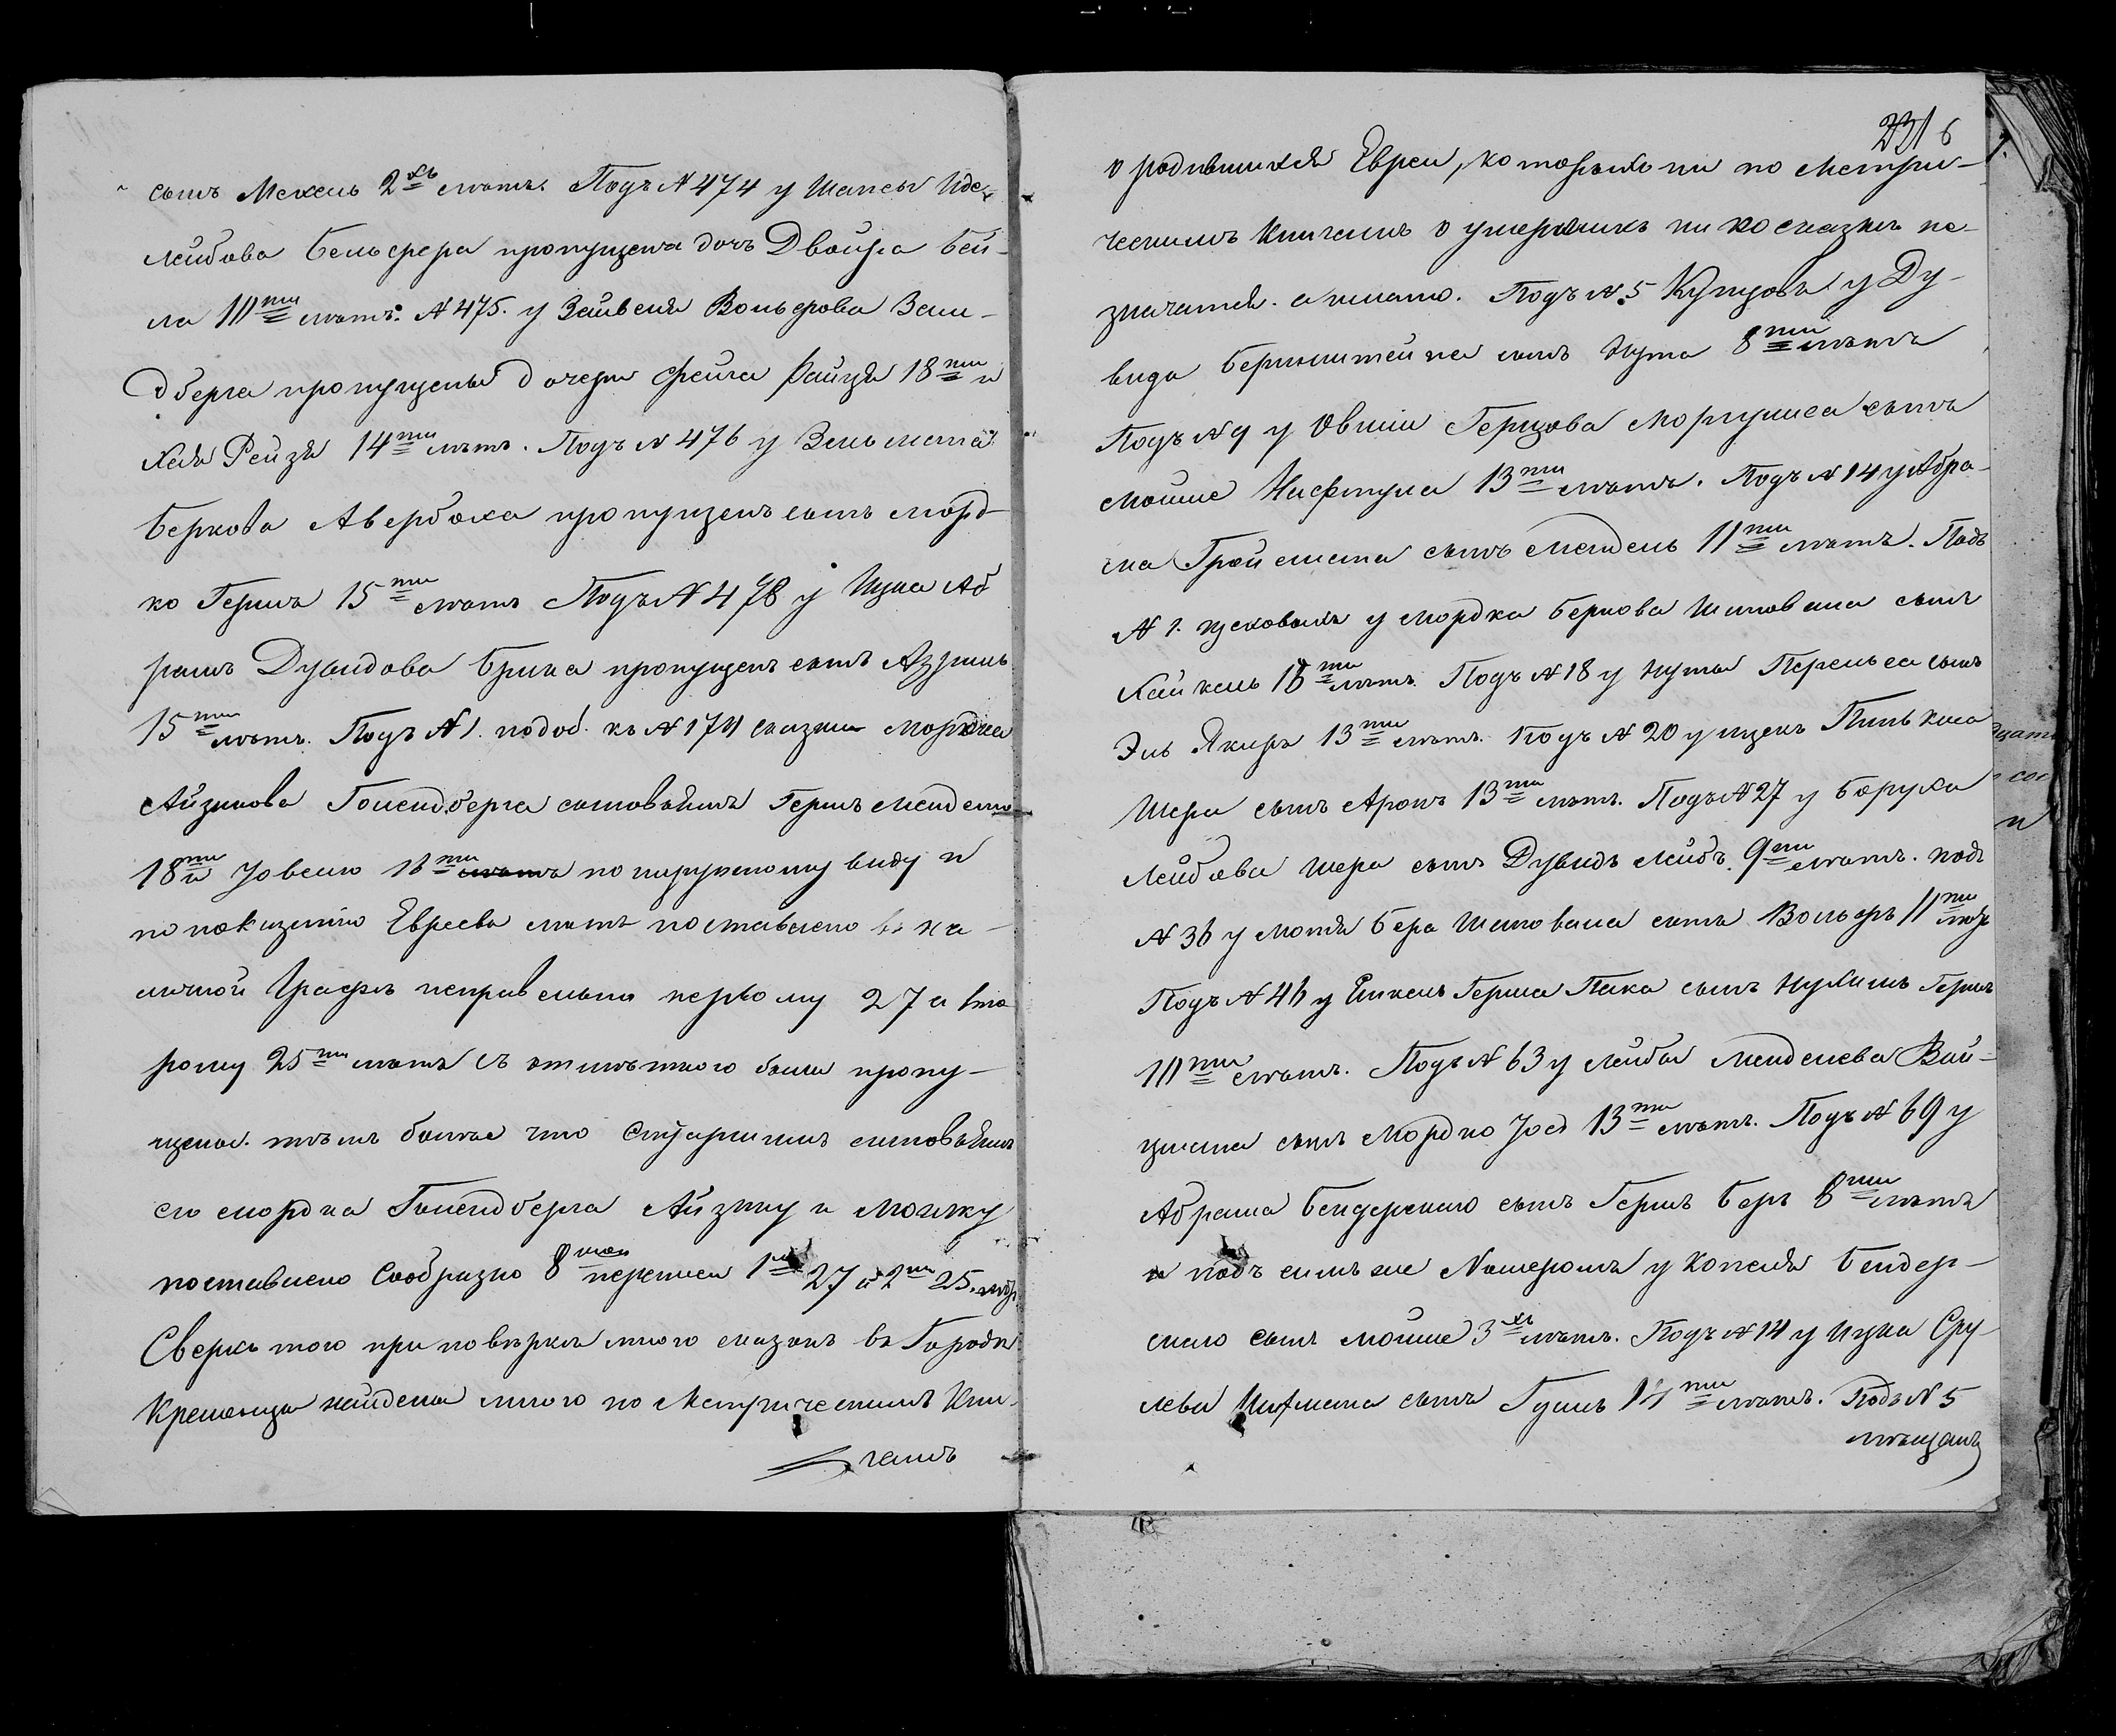 сынъ Мехель 2хъ лѣтъ. Подъ N 474 у Шапсы Иде-
Лейбова Бельфера пропущена дочъ Двойра Бей-
ла 10ти лѣтъ. N 475. у Зайвеля Вольфова Зель-
дберга пропущены дочери Фейга Райця 18ти и
Хая Рейзя 14ти лѣтъ. Подъ N 476 у Зельмана
Беркова Авербоха пропущенъ сынъ Морд-
ко Гершъ 15ти лѣтъ Подъ N 478 у Ицка Аб
рамъ Дувидова Брика пропущенъ сынъ Азриль
15ти лѣтъ. Подъ N 1. подоб. къ N 174 сказки Мордка
Айзикова Гольдберга сыновьямъ Гершъ Менделю
18ти и Іовелю 16ти лѣтъ по наружному виду и
по показанію Евреевъ лѣтъ поставлено въ на-
личной Графѣ неправельно первому 27 а вто
рому 25ти лѣтъ съ отмѣткою были пропу-
щены. тѣмъ болѣе что старшимъ сыновьямъ
его Мордка Гольдберга Айзику и Мошку
поставлено сообразно 8мой переписи 1му 27 и 2му 25. лѣтъ
Сверхъ того при повѣркѣ мною сказокъ въ Городѣ
Кременцѣ найдены мною по Метрическимъ Кни-
гамъ
231 6
о родившихся Евреи, которыхъ ни по Метри-
ческимъ Книгамъ о умершихъ ни по сказкѣ не
значатся. а имѣно. Подъ N 5 Купцовъ у Ду-
вида Беринштейна сынъ Нута 8ми лѣтъ
Подъ N 9 у Овшіи Герцова Моргулиса сынъ
Мошие Нафтула 13ти лѣтъ. Подъ N 14 у Абра-
ма Тройсмана сынъ Мендель 11ти лѣтъ. Подъ
N 1. цеховыхъ у Мордка Беркова Шиповаиа сынъ
Хаикель 16ти лѣтъ. Подъ N 18 у Нуты Перельса сынъ
Эль Якиръ 13ти лѣтъ. Подъ N 20 у Ицекъ Пинькаса
Шера сынъ Аронъ 13ти лѣтъ. Подъ N 27 у Боруха
Лейбова Шера сынъ Дувидъ Лейбъ. 9ти лѣтъ. подъ
N 36 у Мотя Бера Шиповаиа сынъ Вольфъ 11ти лѣтъ
Подъ N 46 у Еинкель Герша Пака сынъ Нухимъ Гершъ
10ти лѣтъ. Подъ N 63 у Лейбы Менделева Вай-
цмана сынъ Мордко Іось 13ти лѣтъ. Подъ N 69 у
Абрама Бендерскаго сынъ Гершъ Беръ 8ми лѣтъ
и подъ симъ же Номеромъ у Копеля Бендер-
скаго сынъ Мошие 3хъ лѣтъ. Подъ N 14 у Ицка Сру-
лева сынъ 14ти лѣтъ. Подъ N 5
мѣщанъ